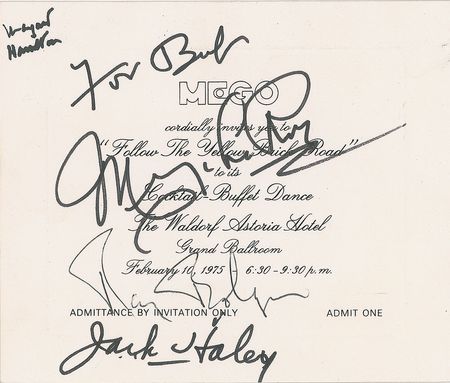 Margaret
Hamilton
For Bob
MEGO
cordially invites you to
"Follow The Yellow Brick Road"
to its
Cocktail-Buffet Dance
The Waldorf Astoria Hotel
Grand Ballroom
February 10, 1975 - 6:30-9:30 p.m.
Ray Bolger
ADMITTANCE BY INVITATION ONLY ADMIT ONE
Jack Haley